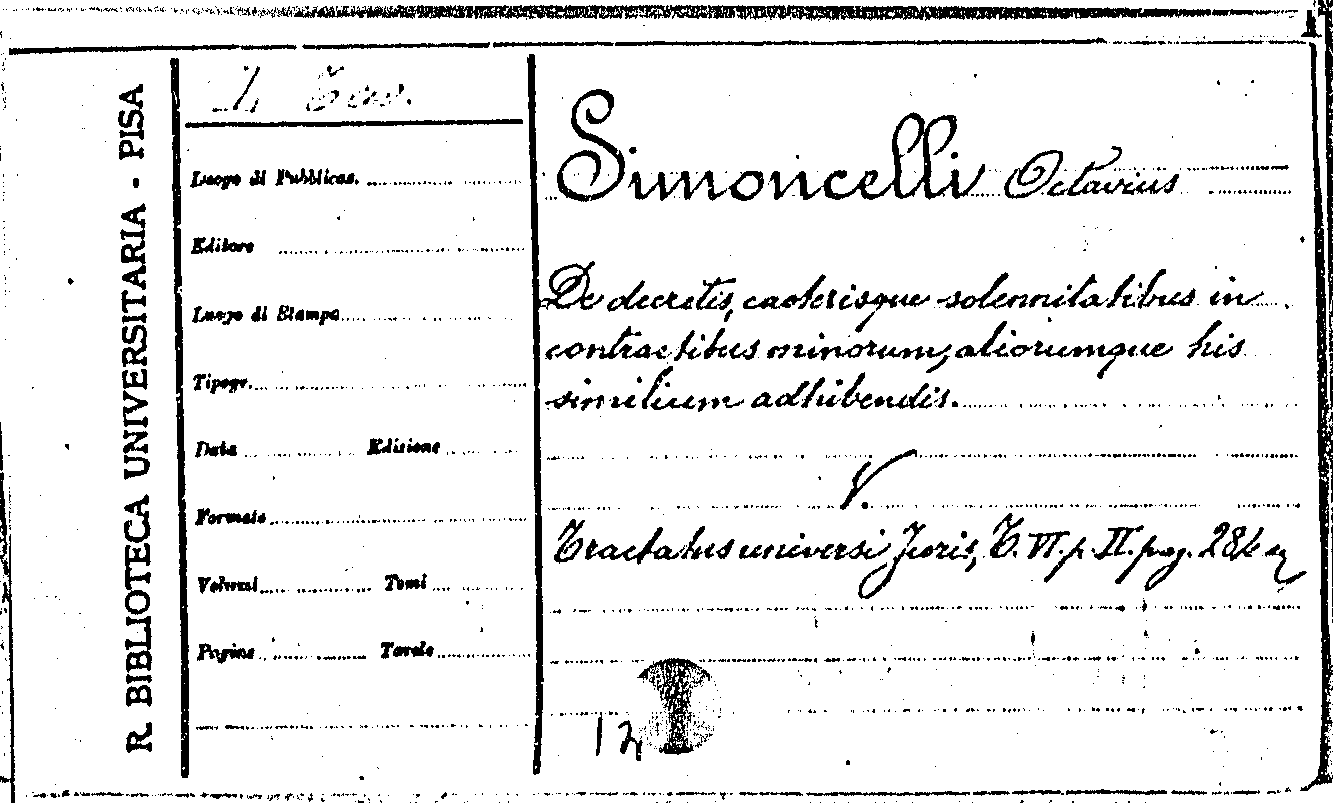 R. BIBLIOTECA UNIVERSITARIA - PISA
Luogo di Pubblicaz.
Editore
Luogo di Stampa
Tipogr.
Data Edizione
Formato
Volumi Tomi
Pagine Tavole
Simoncelli Octavius
De decretis, caeterisque solennitatibus in
contractibus minorum, aliorumque his
similium adhibendis.
V.
Tractatus universi Juris, T. VI. p. II. pag.
12